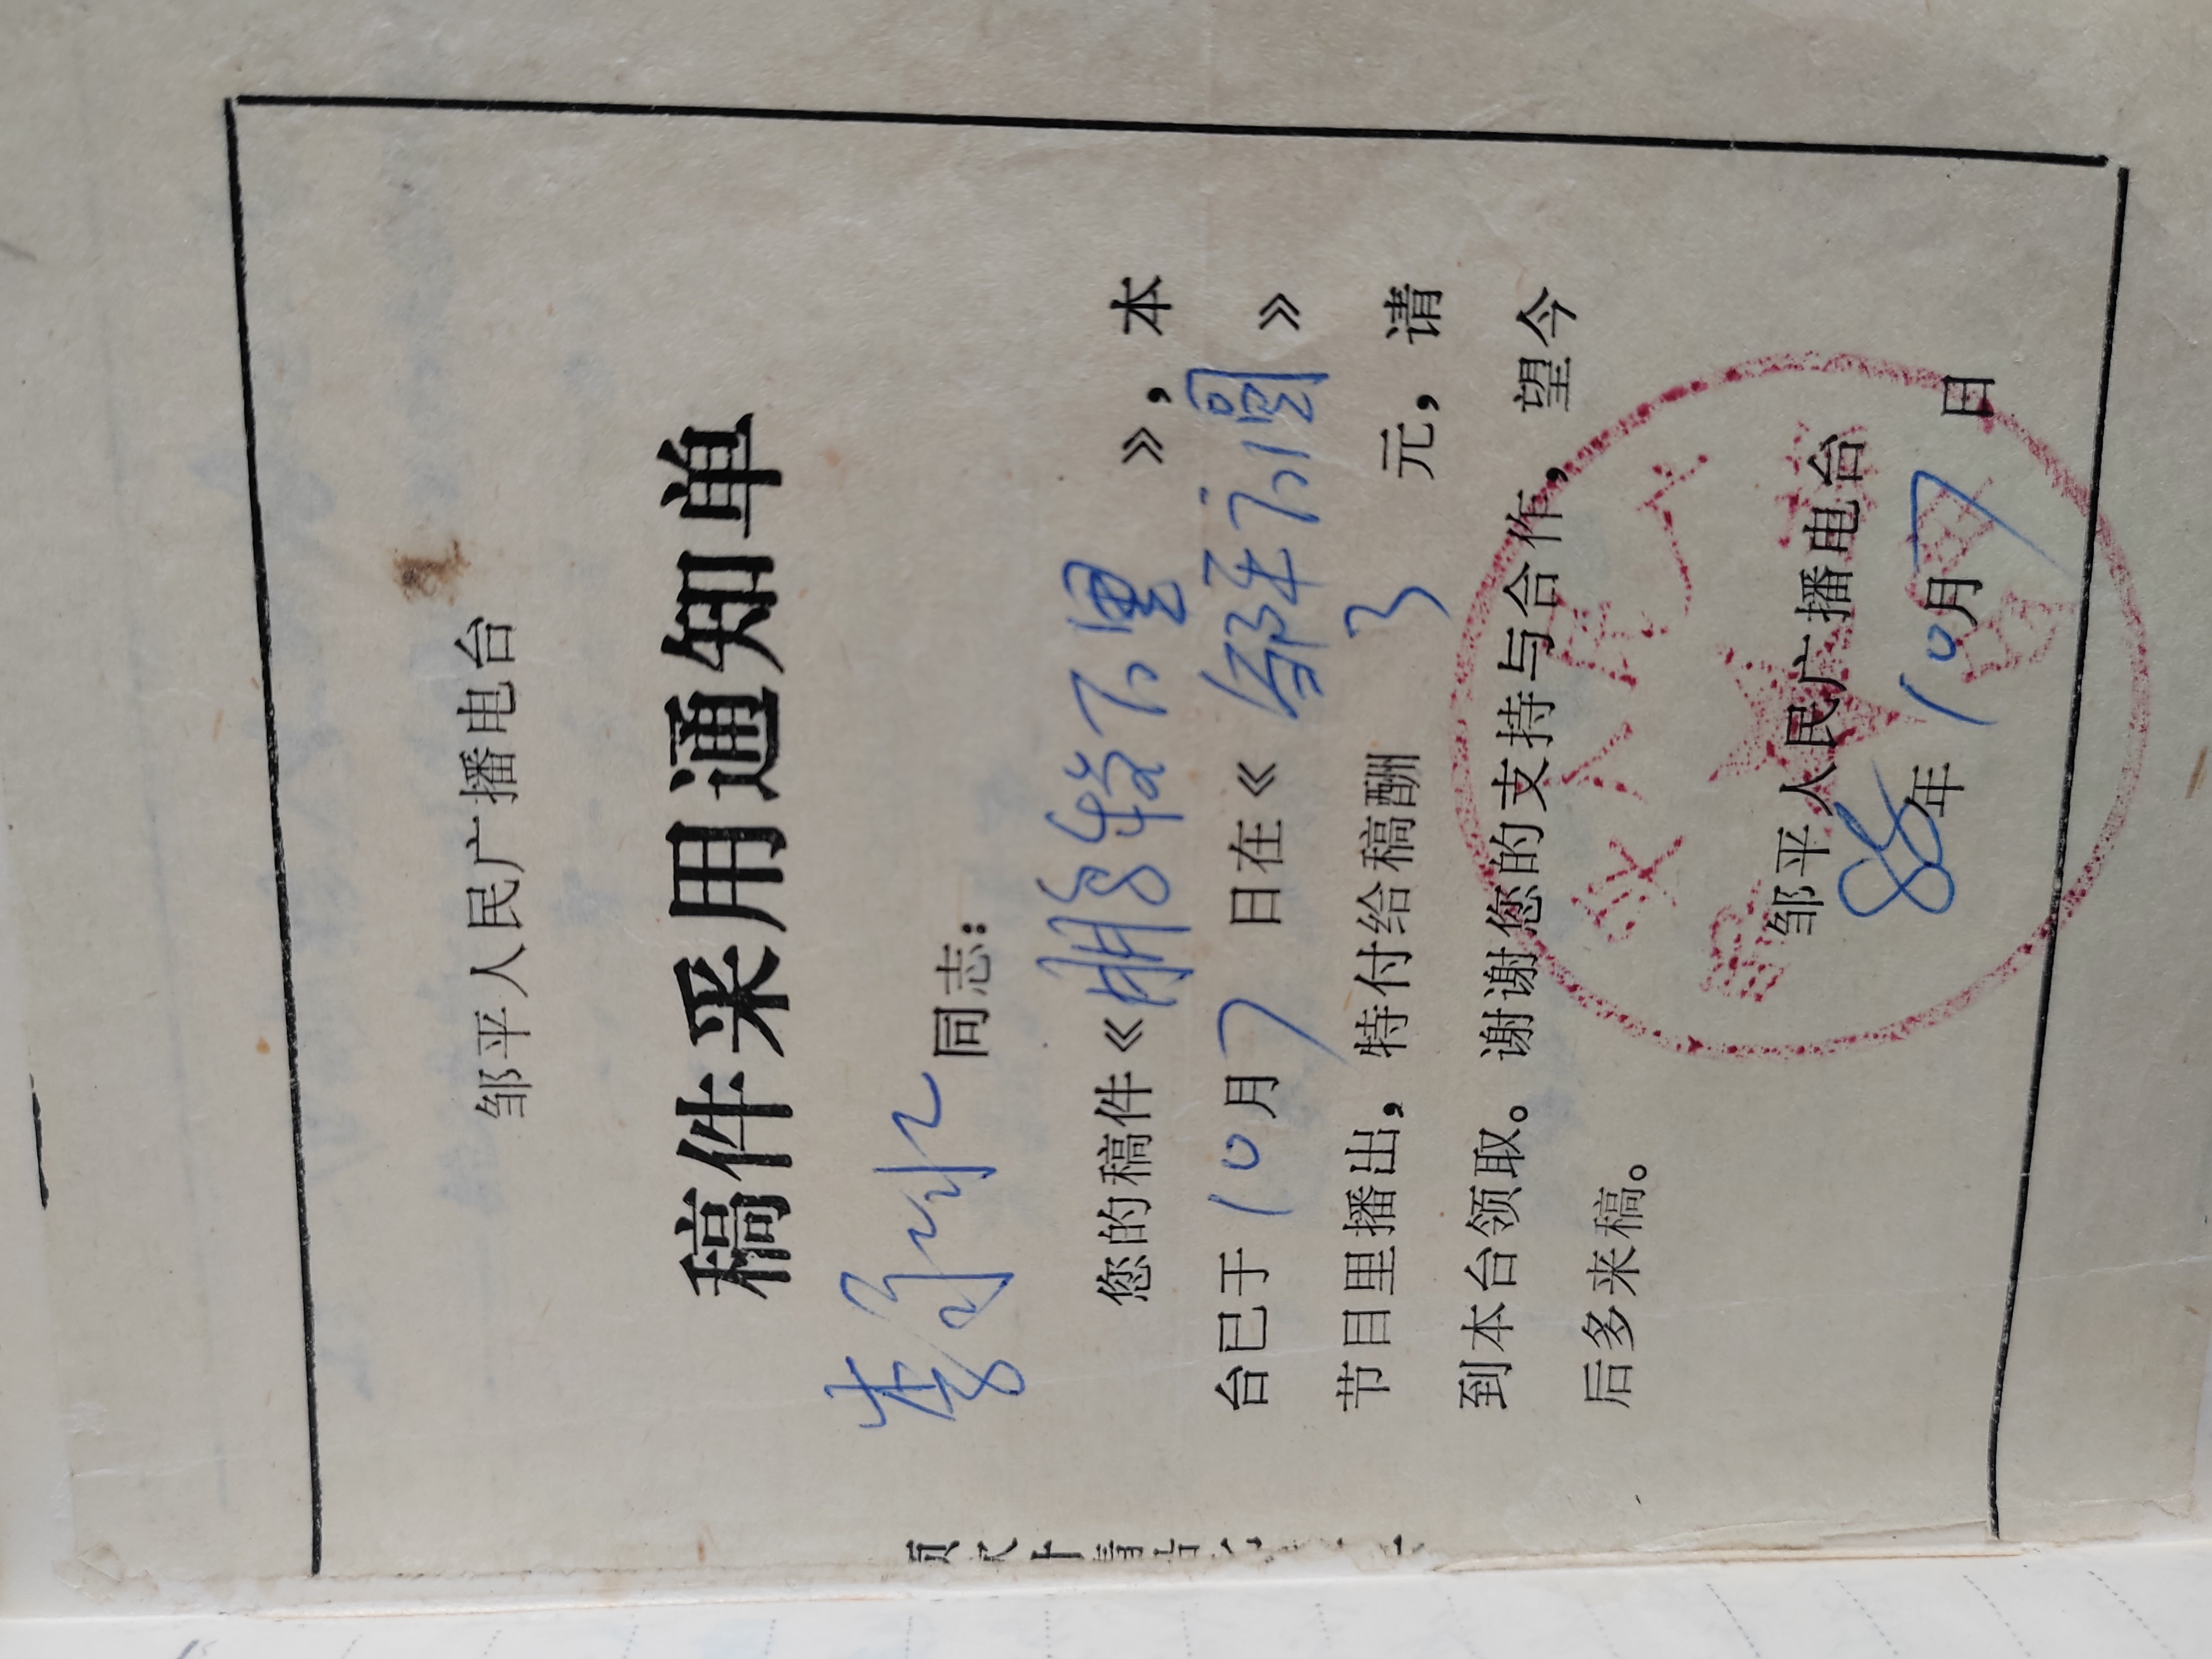 邹平人民广播电台
稿件采用通知单
李 同志：
您的稿件《棚 下 》，本
台已于10月7日在《邹平 》
节目里播出，特付给稿酬3元，请
到本台领取。谢谢您的支持与合作，望今
后多来稿。
邹平人民广播电台
86年10月7日